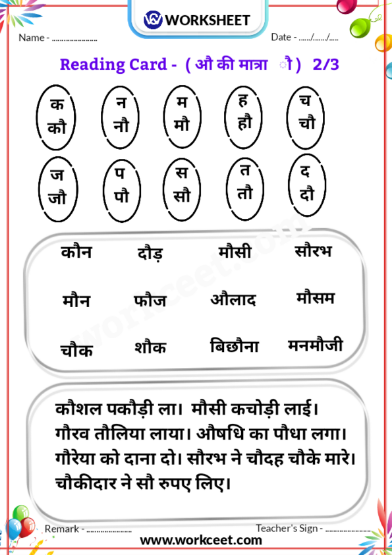 WORKSHEET
Name - ........................ Date - ....../....../.....
Reading Card - ( औ की मात्रा ौ ) 2/3
क न म ह च
कौ नौ मौ हौ चौ
ज प स त द
जौ पौ सौ तौ दौ
कौन दौड़ मौसी सौरभ
मौन फौज औलाद मौसम
चौक शौक बिछौना मनमौजी
कौशल पकौड़ी ला। मौसी कचोड़ी लाई।
गौरव तौलिया लाया। औषधि का पौधा लगा।
गौरेया को दाना दो। सौरभ ने चौदह चौके मारे।
चौकीदार ने सौ रुपए लिए।
Remark - ........................ Teacher's Sign - ........................
www.workceet.com